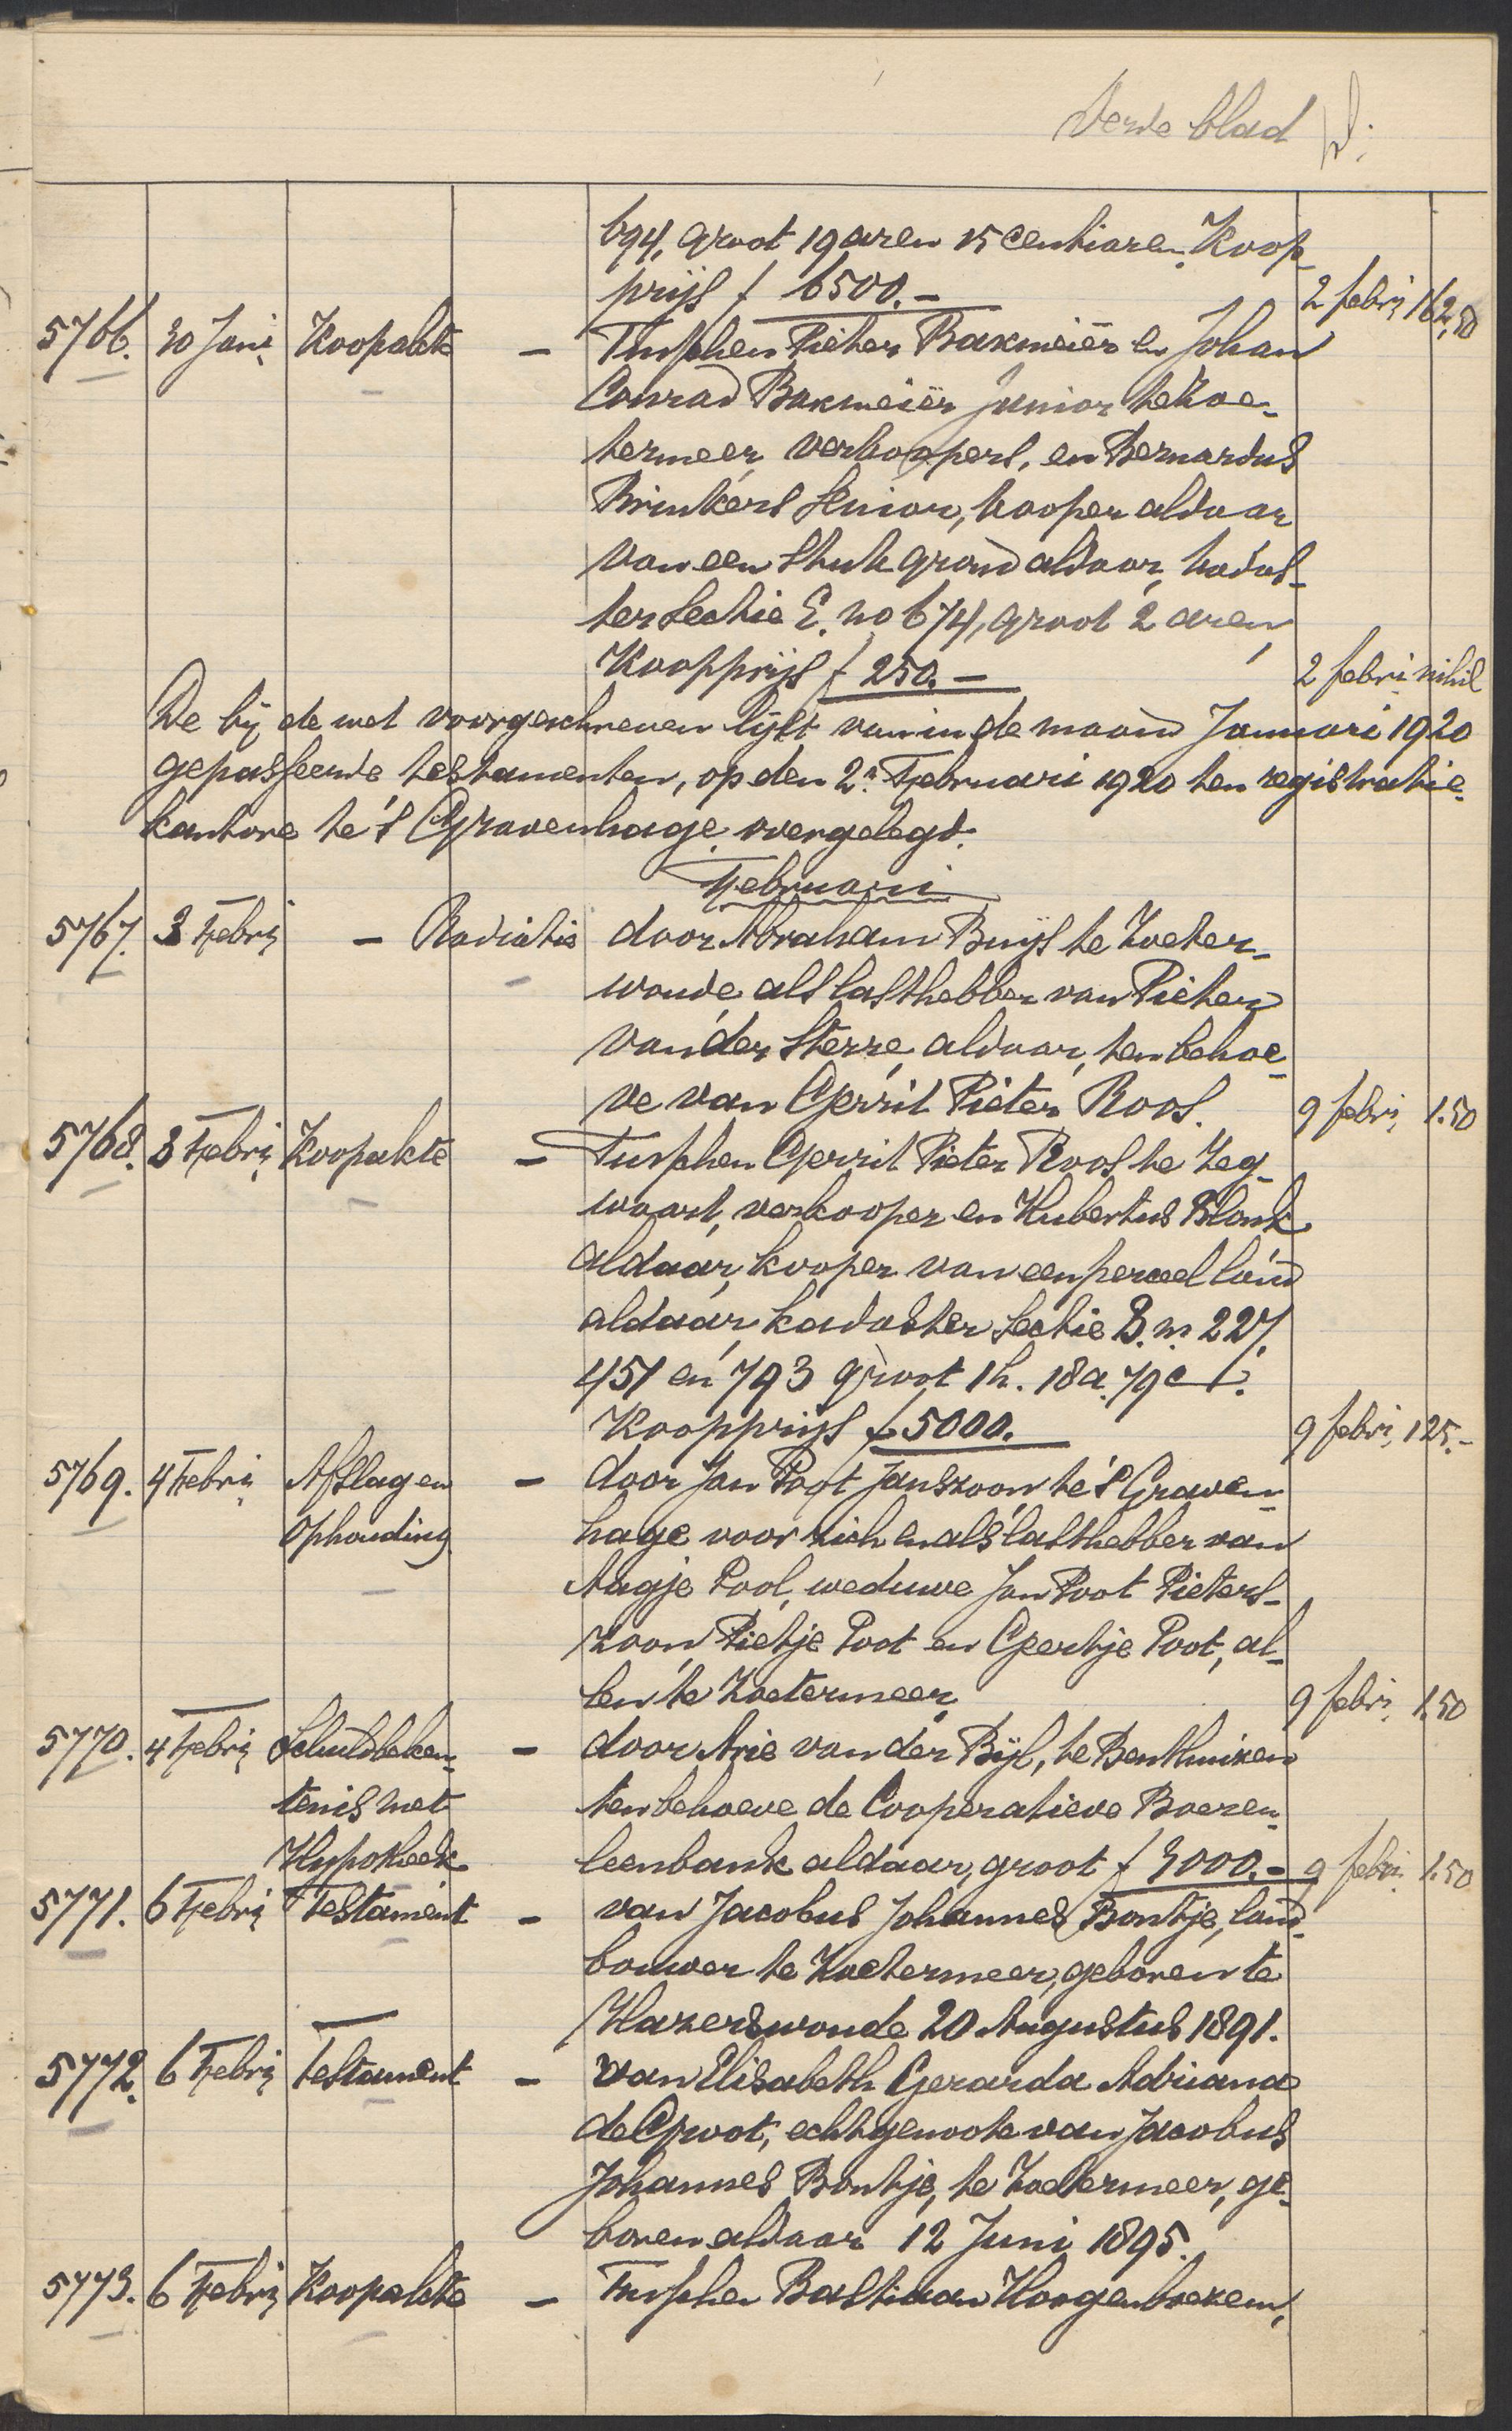 Derde blad
694, groot 19 aren 15 centiaren, Koop-
prijs f 6500.- 2 febri 162,50
5766. 30 Jani Koopakte - Tusschen Pieter Bakmeiër en Johan
Conrad Bakmeiër Junior te Zoe-
termeer, verkoopers, en Bernardus
Brinkers Senior, kooper aldaar
van een stuk grond aldaar, kadas-
ter Sectie E. no 674, groot 2 aren,
Koopprijs f 250.- 2 febri nihil
De bij de wet voorgeschreven lijst van in de maand Januari 1920
gepasseerde testamenten, op den 2n Februari 1920 ten registratie-
kantore te 's Gravenhage overgelegd.
Februari
5767. 3 Febri - Radiatie door Abraham Buijs te Zoeter-
woude, als lasthebber van Pieter
van der Sterre, aldaar, ten behoe-
ve van Gerrit Pieter Roos. 9 febri 1.50
5768. 3 Febri Koopakte - Tusschen Gerrit Pieter Roos te Zeg-
waart, verkooper en Hubertus Blonk
aldaar, kooper van een perceel land
aldaar, kadaster Sectie B. no 227,
451 en 793 groot 1 h. 18 a. 79 c.
Koopprijs f 5000. 9 febri 125.-
5769. 4 Febri Afslag en - door Jan Poot Janszoon te 's Graven-
Ophouding hage voor zich en als lasthebber van
Aagje Pool, weduwe Jan Poot Pieters-
zoon, Pietje Poot en Geertje Poot, al-
len te Zoetermeer, 9 febri 1.50
5770. 4 Febri Schuldbeken- - door Arie van der Bijl, te Benthuizen
tenis met ten behoeve de Cooperatieve Boeren-
Hypotheek leenbank aldaar, groot f 3000.- 9 febri 1.50
5771. 6 Febri Testament - van Jacobus Johannes Bontje, land-
bouwer te Zoetermeer, geboren te
Hazerswoude 20 Augustus 1891.
5772. 6 Febri Testament - van Elisabeth Gerarda Adriana
de Groot, echtgenoote van Jacobus
Johannes Bontje, te Zoetermeer, ge-
boren aldaar 12 Juni 1895.
5773. 6 Febri Koopakte - Tusschen Bastiaan Hoogenboezem,